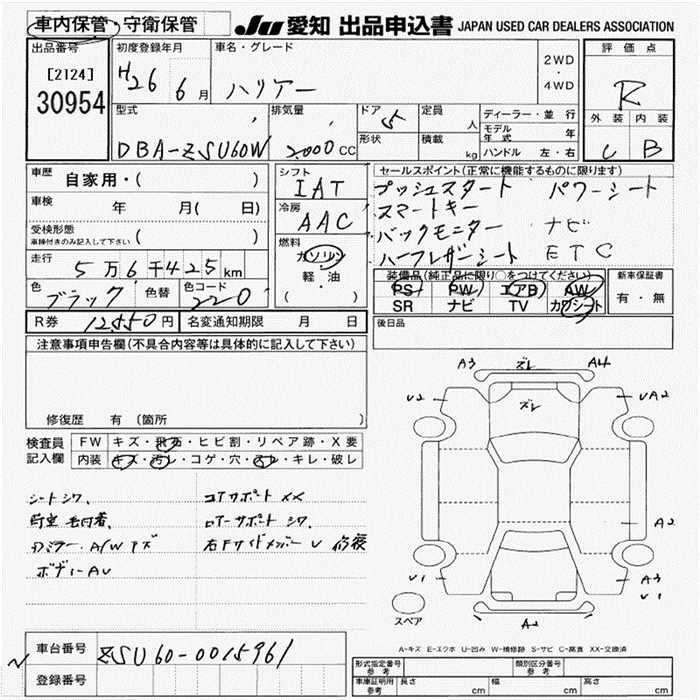 車内保管・守衛保管 JU 愛知 出品申込書 JAPAN USED CAR DEALERS ASSOCIATION
出品番号 初度登録年月 車名・グレード 評価点
[2124] H26 6月 ハリアー 2WD・4WD R
30954
型式 排気量 ドア 定員 ディーラー・並行 外装 内装
DBA-ZSU60W 2000CC 5 人 モデル年式 年 C B
形状 積載 kg ハンドル 左・右
車歴 自家用・( ) シフト セールスポイント(正常に機能するものに限ります)
IAT プッシュスタート パワーシート
車検 年 月(日) 冷房 スマートキー
AAC バックモニター ナビ
受検形態 車検付きのみ記入して下さい ( ) 燃料 ハーフレザーシート ETC
走行 5万6千425km ガソリン 軽・油 ( )
装備品(純正品に限り○をつけてください) 新車保証書
色 ブラック 色替 色コード 220 PS PW エアB AW 有・無
SR ナビ TV カワシート
R券 12550円 名変通知期限 月 日 後日品
注意事項申告欄(不具合内容等は具体的に記入して下さい)
A3 ズレ A4
U2 ズレ UA2
修復歴 有 〔箇所 〕
検査員 FW キズ・飛石・ヒビ割・リペア跡・X要
記入欄 内装 キズ・汚レ・コゲ・穴・スレ・キレ・破レ
シートシワ、 コアサポート XX
毛付着、 ロアーサポート シワ、 A2
ミラー、A/Wキズ 右Fサイドメンバー U 修復
ボディーAU U1 A3
U1
スペア A2
A-キズ E-エクボ U-凹み W-補修跡 S-サビ C-腐食 XX-交換済
車台番号 ZSU60-0015961
登録番号
型式指定番号 参考 類別区分番号 参考
車庫証明用 参考 長さ cm 幅 cm 高さ cm